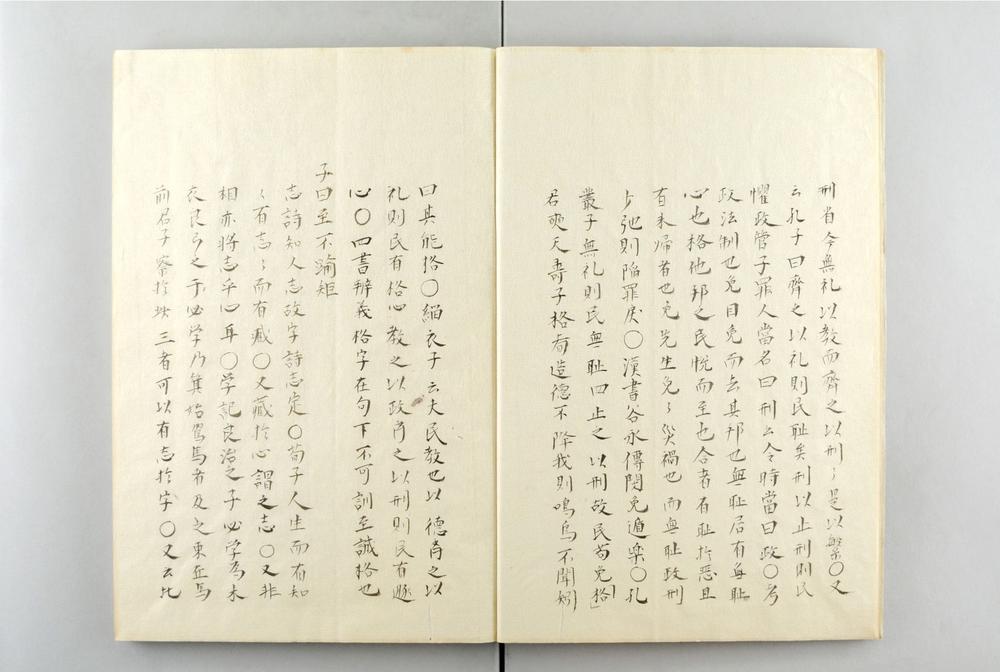 刑省今無礼以教而齊之以刑〻是以繁〇又
云孔子曰齊之以礼則民耻矣刑以止刑則民
懼政管子罪人當名曰刑出令時當曰政〇考
政法制也免目免而去其邦也無耻居有無耻
心也格他邦之民悦而至也合者有耻於惡且
有来帰者也免先生免〻災禍也而無耻政刑
少弛則陥罪戻〇漢書谷永傳閔免遁楽〇孔
叢子無礼則民無耻曰止之以刑故民苟免格
君奭天壽子格耈造德不降我則鳴鳥不聞矧
曰其能格〇緇衣子云夫民教也以德斉之以
礼則民有格心教之以政斉之以刑則民有遯
心〇四書辨義格字在句下不可訓至誠格也
子曰至不踰矩
志詩知人志故字詩志定〇荀子人生而有知
〻有志〻而有臧〇又蔵於心謂之志〇又非
相亦将志乎心耳〇学記良治之子必学為木
裘良弓之子必学乃箕始駕馬者反之東在馬
前君子察於 三者可以有志於字〇又云比